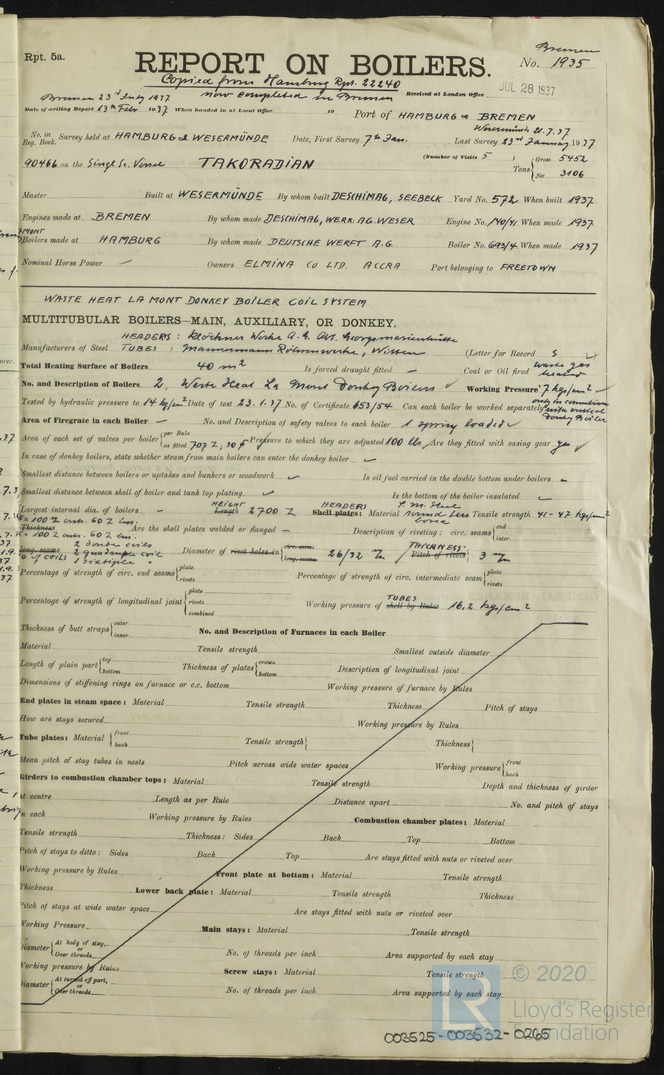 Rpt. 5a.
Bremen
No. 1935
REPORT ON BOILERS.
Copied from Hamburg Rpt. 22240
now completed in Bremen
JUL 28 1937
Received at London Office
Bremen 23rd July 1937
Date of writing Report 13th Febr 1937 When handed in at Local Office 19 Port of HAMBURG & BREMEN
Wesermünde 21.7.37
No. in Reg. Book. Survey held at HAMBURG & WESERMÜNDE Date, First Survey 7th Jan. Last Survey 23rd January 1937
(Number of Visits 5 )
90466 on the Single Sc. Vessel TAKORADIAN Tons Gross 5452 Net 3106
Master Built at WESERMÜNDE By whom built DESCHIMAG, SEEBECK Yard No. 572 When built 1937
Engines made at BREMEN By whom made DESCHIMAG, WERK. AG. WESER Engine No. 140/41 When made 1937
Boilers made at HAMBURG By whom made DEUTSCHE WERFT A.G. Boiler No. 693/4 When made 1937
Nominal Horse Power Owners ELMINA CO LTD. ACCRA Port belonging to FREETOWN
WASTE HEAT LA MONT DONKEY BOILER COIL SYSTEM
MULTITUBULAR BOILERS—MAIN, AUXILIARY, OR DONKEY.
HEADERS: Klöckner Werke A.G. Abt. Georgsmarienhütte
Manufacturers of Steel TUBES: Mannesmann Röhrenwerke, Witten (Letter for Record S )
Total Heating Surface of Boilers 40 m² Is forced draught fitted – Coal or Oil fired waste gas heated
No. and Description of Boilers 2, Waste Heat La Mont Donkey Boilers Working Pressure 7 kgs/cm²
only in connection with vertical Donkey Boiler
Tested by hydraulic pressure to 14 kg/cm² Date of test 23.1.37 No. of Certificate 653/54 Can each boiler be worked separately
Area of Firegrate in each Boiler – No. and Description of safety valves to each boiler 1 spring loaded
Area of each set of valves per boiler per Rule as fitted 707 Pressure to which they are adjusted 100 lbs. Are they fitted with easing gear yes
In case of donkey boilers, state whether steam from main boilers can enter the donkey boiler
Smallest distance between boilers or uptakes and bunkers or woodwork Is oil fuel carried in the double bottom under boilers
Smallest distance between shell of boiler and tank top plating Is the bottom of the boiler insulated
HEIGHT HEADERS S.M. Steel
Largest internal dia. of boilers – Length 2700 Shell plates: Material round bars Tensile strength 41-47 kgs/mm²
bored
Thickness Are the shell plates welded or flanged – Description of riveting: circ. seams end inter.
2 double coils
2 quadruple coil
1 sixtiple "
long. seams Diameter of rivet holes in circ. seams long. seams 26/32 THICKNESS Pitch of rivets 3
Percentage of strength of circ. end seams plate rivets Percentage of strength of circ. intermediate seam plate rivets
Percentage of strength of longitudinal joint plate rivets combined Working pressure of TUBES shell by Rules 16.2 kgs/cm²
Thickness of butt straps outer inner No. and Description of Furnaces in each Boiler
Material Tensile strength Smallest outside diameter
Length of plain part top bottom Thickness of plates crown bottom Description of longitudinal joint
Dimensions of stiffening rings on furnace or c.c. bottom Working pressure of furnace by Rules
End plates in steam space: Material Tensile strength Thickness Pitch of stays
How are stays secured Working pressure by Rules
Tube plates: Material front back Tensile strength Thickness
Mean pitch of stay tubes in nests Pitch across wide water spaces Working pressure front back
Girders to combustion chamber tops: Material Tensile strength Depth and thickness of girder
at centre Length as per Rule Distance apart No. and pitch of stays
in each Working pressure by Rules Combustion chamber plates: Material
Tensile strength Thickness: Sides Back Top Bottom
Pitch of stays to ditto: Sides Back Top Are stays fitted with nuts or riveted over
Working pressure by Rules Front plate at bottom: Material Tensile strength
Thickness Lower back plate: Material Tensile strength Thickness
Pitch of stays at wide water space Are stays fitted with nuts or riveted over
Working Pressure Main stays: Material Tensile strength
Diameter At body of stay, or Over threads No. of threads per inch Area supported by each stay
Working pressure by Rules Screw stays: Material Tensile strength
Diameter At turned off part, or Over threads No. of threads per inch Area supported by each stay
LR © 2020
Lloyd's Register
Foundation
003525-003532-0265